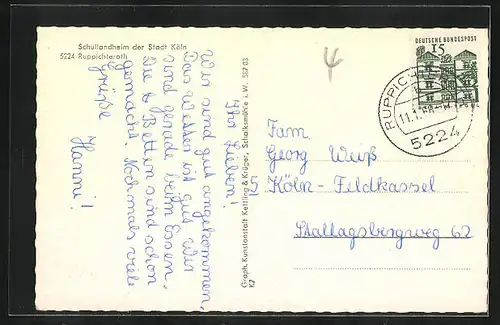 Schullandheim der Stadt Köln
5224 Ruppichteroth
Ihr Lieben!
Wir sind gut angekommen,
das Wetter ist gut. Wir
sind gerade beim Essen.
Die 6 Betten sind schon
gemacht. Nochmals viele
Grüße
Hanni!
Graph. Kunstanstalt Kettling & Krüger, Schalksmühle i. W. 587/03
K2
4
DEUTSCHE BUNDESPOST
15
RUPPICH
5224
Fam
Georg Weiß
5 Köln-Feldkassel
Stallagsbergweg 62